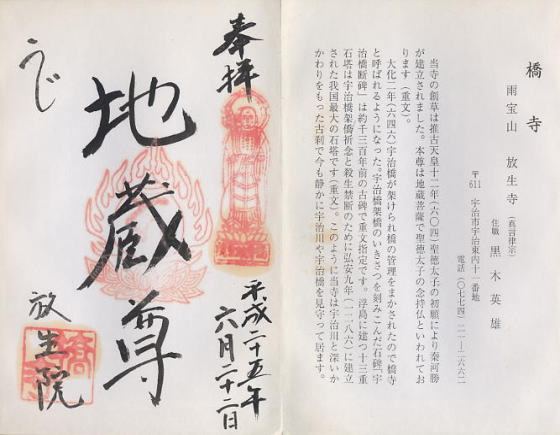 橋寺
雨宝山 放生寺 (真言律宗)
住職 黒木英雄
〒611 宇治市宇治東内十一番地
電話(〇七七四)二一―二六六二
当寺の創草は推古天皇十二年(六〇四)聖徳太子の初願により秦河勝
が建立されました。本尊は地蔵菩薩で聖徳太子の念持仏といわれてお
ります(重文)。
大化二年(六四六)宇治橋が架けられ橋の管理をまかされたので橋寺
と呼ばれるようになった。宇治橋架橋のいきさつを刻みこんだ石碑「宇
治橋断碑」は約千三百年前の古碑で重文指定です。浮島に建つ十三重
石塔は宇治橋架橋祈念と殺生禁断のために弘安九年(一二八六)に建立
された我国最大の石塔です(重文)。このように当寺は宇治川と深いか
かわりをもった古刹で今も静かに宇治川や宇治橋を見守って居ます。
奉拝
平成二十五年
六月二十二日
地蔵尊
うじ
放生院